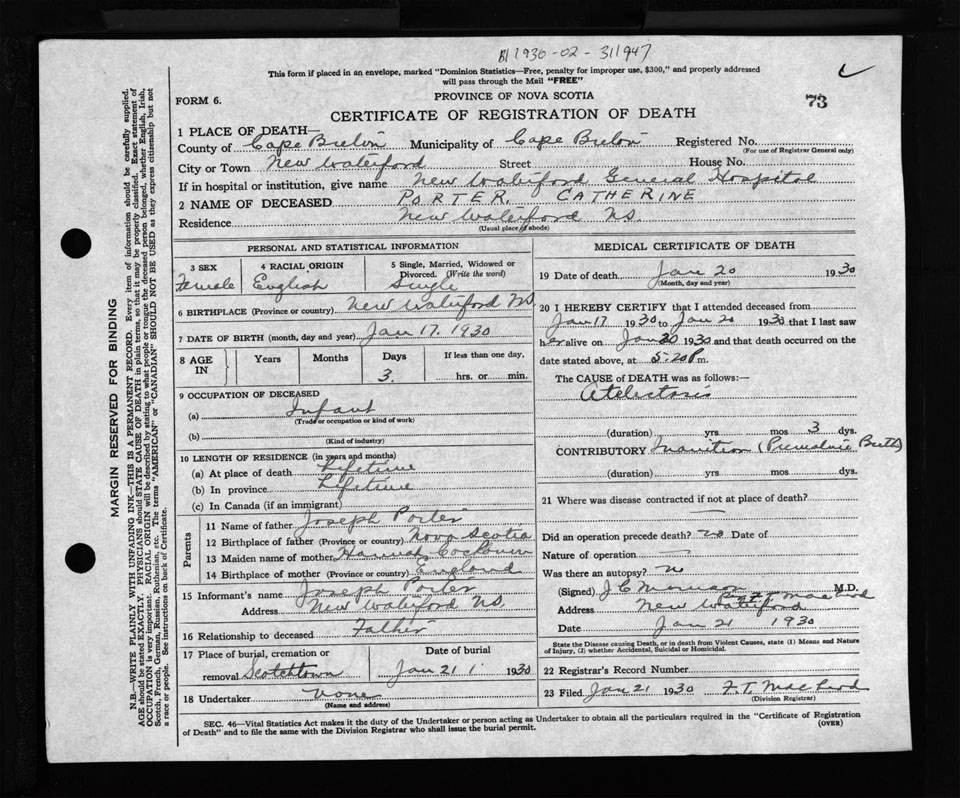 B 1930-02-311947
This form if placed in an envelope, marked "Dominion Statistics—Free, penalty for improper use, $300," and properly addressed
will pass through the Mail "FREE"
PROVINCE OF NOVA SCOTIA
73
FORM 6.
CERTIFICATE OF REGISTRATION OF DEATH
1 PLACE OF DEATH—
County of Cape Breton Municipality of Cape Breton Registered No.
(For use of Registrar General only)
City or Town New Waterford Street House No.
If in hospital or institution, give name New Waterford General Hospital
2 NAME OF DECEASED PORTER, CATHERINE
Residence New Waterford N.S.
(Usual place of abode)
PERSONAL AND STATISTICAL INFORMATION
3 SEX 4 RACIAL ORIGIN 5 Single, Married, Widowed or
Divorced. (Write the word)
Female English Single
6 BIRTHPLACE (Province or country) New Waterford N.S.
7 DATE OF BIRTH (month, day and year) Jan 17. 1930
8 AGE IN Years Months Days If less than one day,
3. hrs. or min.
9 OCCUPATION OF DECEASED
(a) Infant
(Trade or occupation or kind of work)
(b)
(Kind of industry)
10 LENGTH OF RESIDENCE (in years and months)
(a) At place of death Lifetime
(b) In province Lifetime
(c) In Canada (if an immigrant)
Parents
11 Name of father Joseph Porter
12 Birthplace of father (Province or country) Nova Scotia
13 Maiden name of mother Hannah
14 Birthplace of mother (Province or country) England
15 Informant's name Joseph Porter
Address New Waterford N.S.
16 Relationship to deceased Father
17 Place of burial, cremation or Date of burial
removal Scotchtown Jan 21 1930
18 Undertaker None
(Name and address)
MEDICAL CERTIFICATE OF DEATH
19 Date of death Jan 20 1930
(Month, day and year)
20 I HEREBY CERTIFY that I attended deceased from
Jan 17 1930 to Jan 20 1930 that I last saw
her alive on Jan 20 1930 and that death occurred on the
date stated above, at 5.20 P m.
The CAUSE OF DEATH was as follows:—
Atelectasis
(duration) yrs mos 3 dys.
CONTRIBUTORY Inanition (Premature Birth)
(duration) yrs. mos. dys.
21 Where was disease contracted if not at place of death?
—
Did an operation precede death? no Date of
Nature of operation —
Was there an autopsy? no
(Signed) J C Morrison M.D.
Address New Waterford
Date Jan 21 1930
State the Disease causing Death, or in death from Violent Causes, state (1) Means and Nature
of Injury, (2) whether Accidental, Suicidal or Homicidal.
22 Registrar's Record Number
23 Filed Jan 21 1930 F.T. MacLeod
(Division Registrar)
SEC. 46—Vital Statistics Act makes it the duty of the Undertaker or person acting as Undertaker to obtain all the particulars required in the "Certificate of Registration
of Death" and to file the same with the Division Registrar who shall issue the burial permit. (OVER)
MARGIN RESERVED FOR BINDING
N.B.—WRITE PLAINLY WITH UNFADING INK—THIS IS A PERMANENT RECORD. Every item of information should be carefully supplied.
AGE should be stated EXACTLY. PHYSICIANS should STATE CAUSE OF DEATH in plain terms, so that it may be properly classified. Exact statement of
OCCUPATION is very important. RACIAL ORIGIN will be described by stating to what people or tongue the deceased person belonged, whether English, Irish,
Scotch, French, German, Russian, Ruthenian, etc. The terms "AMERICAN" or "CANADIAN" SHOULD NOT BE USED as they express citizenship but not
a race or people. See instructions on back of Certificate.